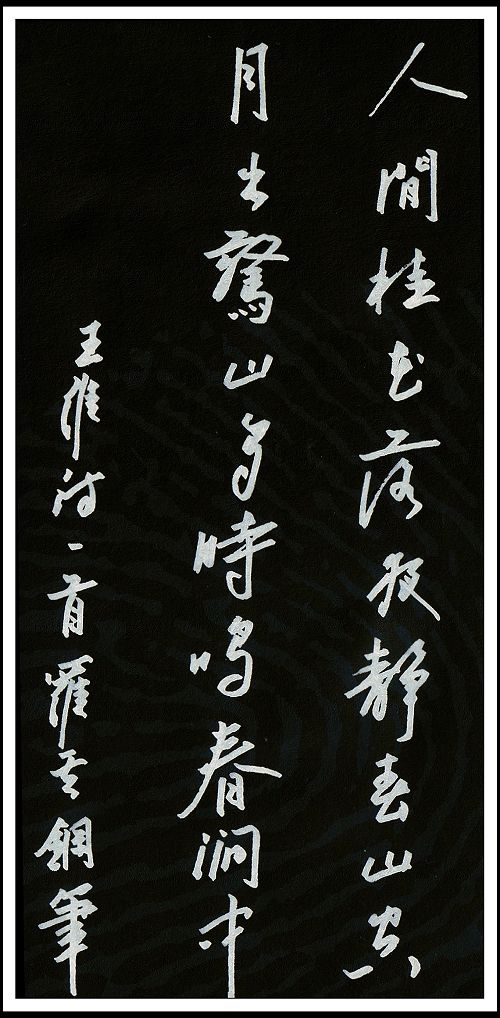 人間桂花落夜靜春山空
月出驚山鳥時鳴春澗中
王維詩一首羅鋼筆